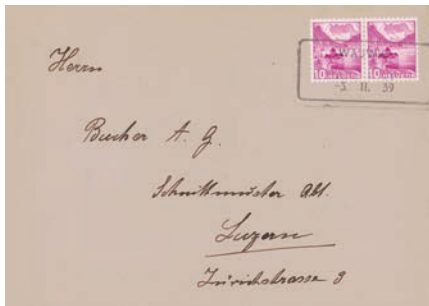 10 10
-3. 11. 39
Herrn
Bucher A. G.
Schnittmuster Abt.
Luzern
Zürichstrasse 3